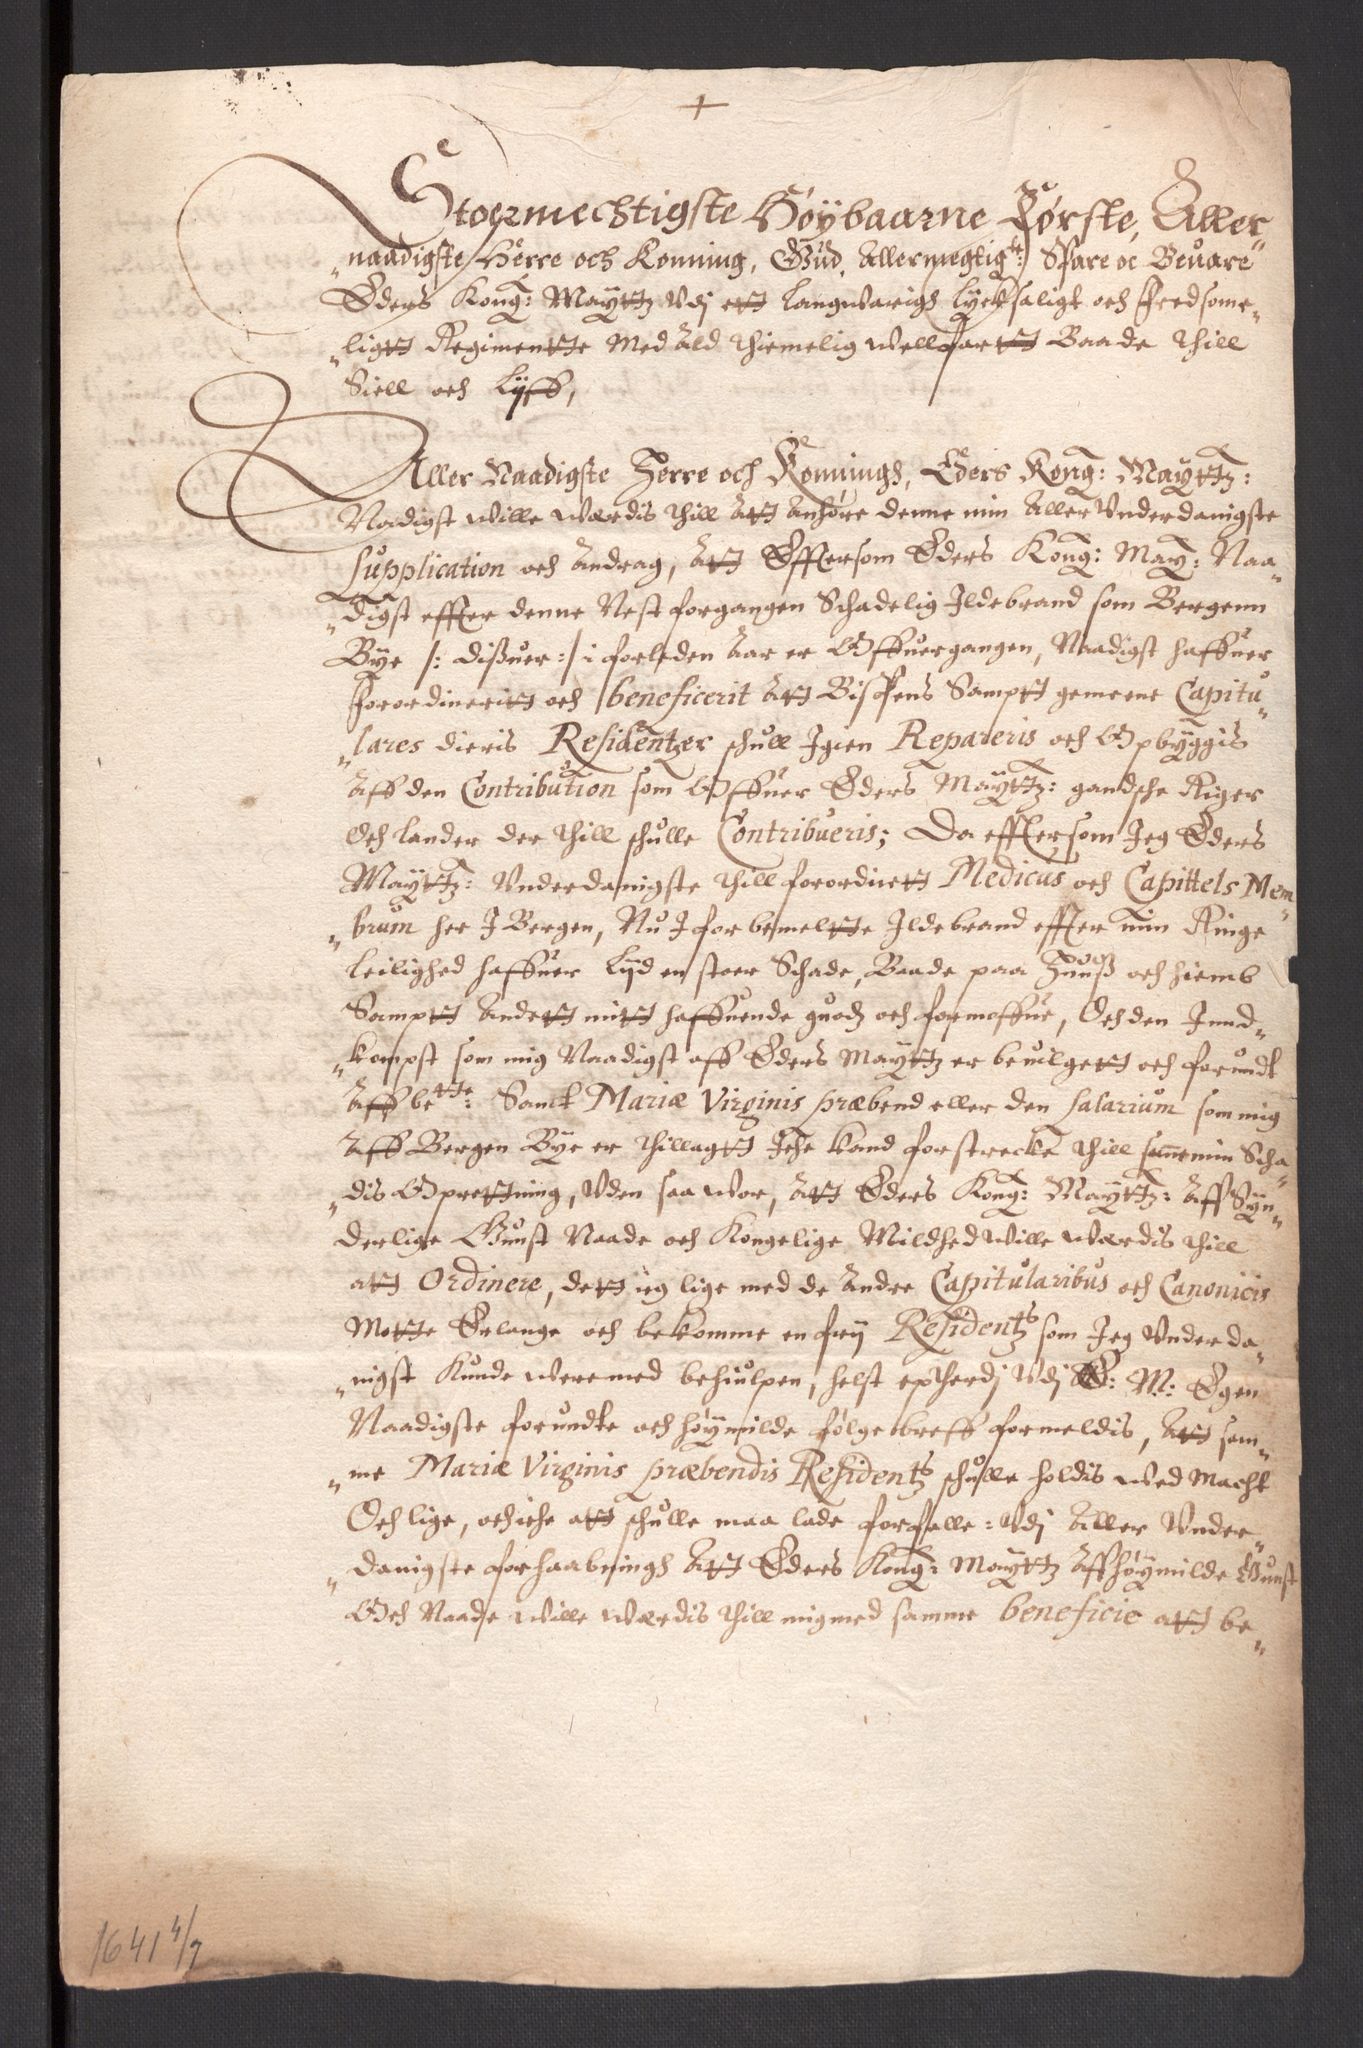 +
Stormechtigste Høybaarne Første, Aller„
„naadigste Herre och Konning, Gud Allermegtigste: Spare oc Beuare
Eders Kong: Maytz Vdj ett langwarigh lycksaligt och fredsome„
„ligtt Regimentte Med Ald thimelig wellfartt Baade thill
Siell och Lyff,
Aller Naadigste Herre och Konningh, Eders Kong: Mayttz:
Nadigst wille werdis thill Att Anhøre denne min Aller Vnderdanigste
Supplication och Andrag, Att Effter som Eders Kong: May: Naa„
„digst effter denne Nest forgangen Schadelig Ildebrand som Bergenn
Bye /: dißuer :/ i forleden Aar er Offuergangen, Naadigst haffuer
forordineritt och beneficerit Att Bispens Samptt gemeene Capitu„
„lares dieris Residentzer schull Igien Repareris och Opbyggis
Aff den Contribution som Offuer Eders Mayttz: gandsche Riger
Och lander der thill schulle Contribueris; Da efftersom Jeg Eders
Mayttz: Vnderdanigste thill forordnett Medicus och Capittels Mem„
„brum her I Bergen, Nu I for bemeltte Ildebrand effter min Ringe
leilighed haffuer lyd en stoer Schade, Baade paa Huuß och hiemb
Samptt Andett mitt haffuende guodz och formoffue, Och den Innd„
„kompst som mig Naadigst aff Eders Mayttz er beuilgett och forundt
Aff bette: Sanct Mariæ Virginis præbend eller den salarium som mig
Aff Bergen Bye er thillagtt Iche kand forstrecke thill samme min Scha„
„dis Oprettning, Vden saa wor, Att Eders Kong: Mayttz: Aff Syn„
derlige Gunst Naade och Kongelige Mildhed wille werdis thill
att Ordinere, dett ieg lige med de Andre Capitularibus och Canonicis
Motte Erlange och bekomme en fry Residentz som Jeg Vnderda„
„nigst kunde were med behiulpen, helst eptherdj Vdj E: M: Egen
Naadigste forundte och høymilde følgebreff formeldis, Att sam„
„me Mariæ Virginis præbendis Residentz schulle holdis wed Macht
Och lige, och iche att schulle maa lade forfalle: Vdj Aller Vnder„
„danigste forhaabningh Att Eders Kong: Mayttz Aff høymilde Gunst
Och Naade wille werdis thill mig med samme beneficie att be„
1641 4/7